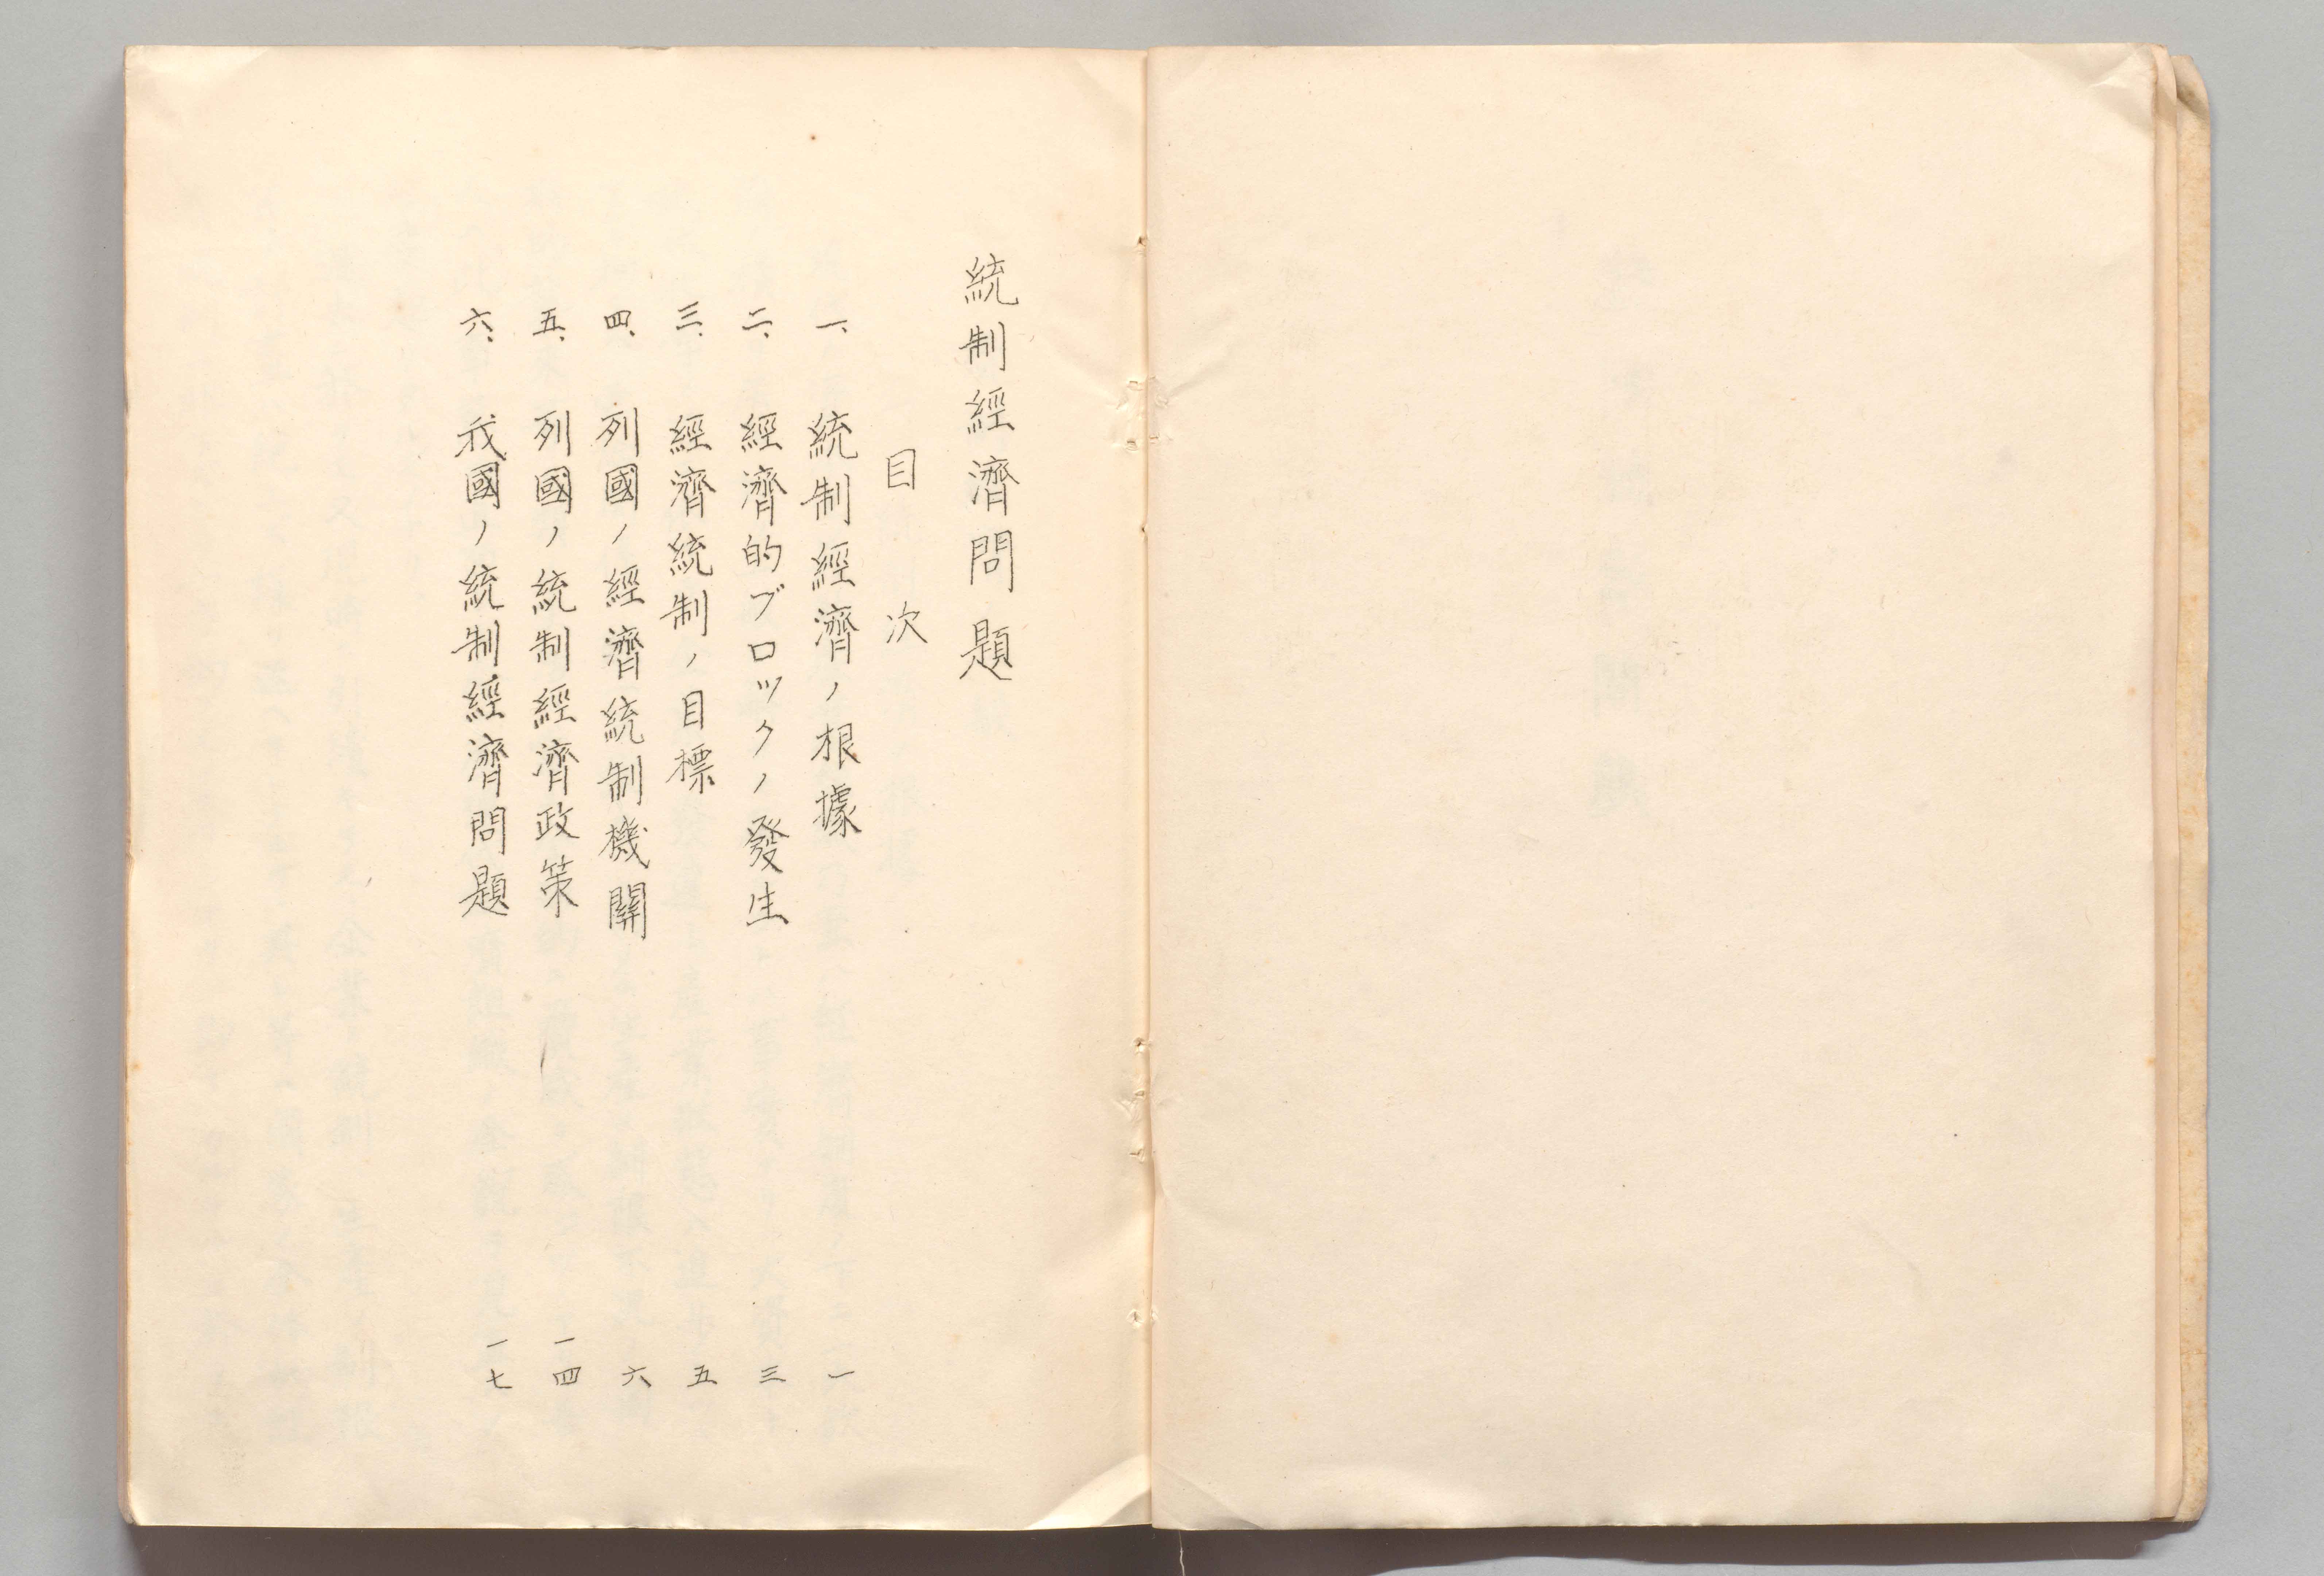 統制經濟問題
目次
一、統制經濟ノ根據 一
二、經濟的ブロックノ發生 三
三、經濟統制ノ目標 五
四、列國ノ經濟統制機關 六
五、列國ノ統制經濟政策 一四
六、我國ノ統制經濟問題 一七